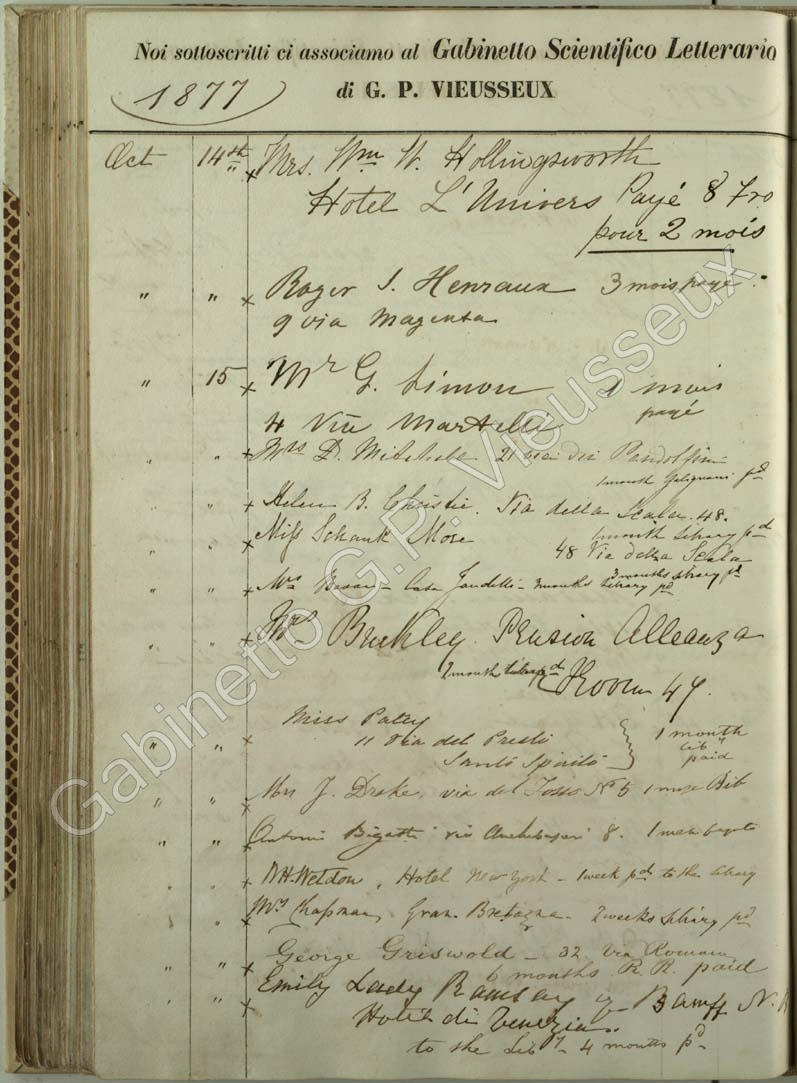 Noi sottoscritti ci associamo al Gabinetto Scientifico Letterario
di G. P. VIEUSSEUX
1877
Oct 14th x Mrs. Wm W. Hollingsworth
Hotel L'Univers Payé 8 Frs
pour 2 mois
" " x Roger S. Henraux 3 mois payé
9 via Magenta
" 15 x Mr G. Simon 1 mois
4 Via Martelli payé
" " x Mrs D. Mitchell 21 via dei Pandolfini
1 month Galignani pd
" " x Helen B. Christie. Via della Scala. 48.
1 month library pd
" " x Miss Schank More
48 Via della Scala
3 months library pd
" " x Mrs Casa 3 months library pd
" " x Mrs Buckley. Pension Alleanza
2 month library pd Room 47.
" " x Miss Patry 1 month
11 Via del Presto lib'y
Santo Spirito paid
" " x Mrs J. Drake, via del Fosso No 5 1 mese Bib
" " x Antonio Bigatti via 8. 1 mese
" " x W.H. Weldon, Hotel New York - 1 week pd to the library
" x Mrs Chapman, Gran. Bretagna - 2 weeks library pd
" " x George Griswold - 32 Via Romana
6 months R. R. paid
" " x Emily Lady Ramsay of Bamff N. B
Hotel di Venezia.
to the Liby - 4 months pd
Gabinetto G.P. Vieusseux